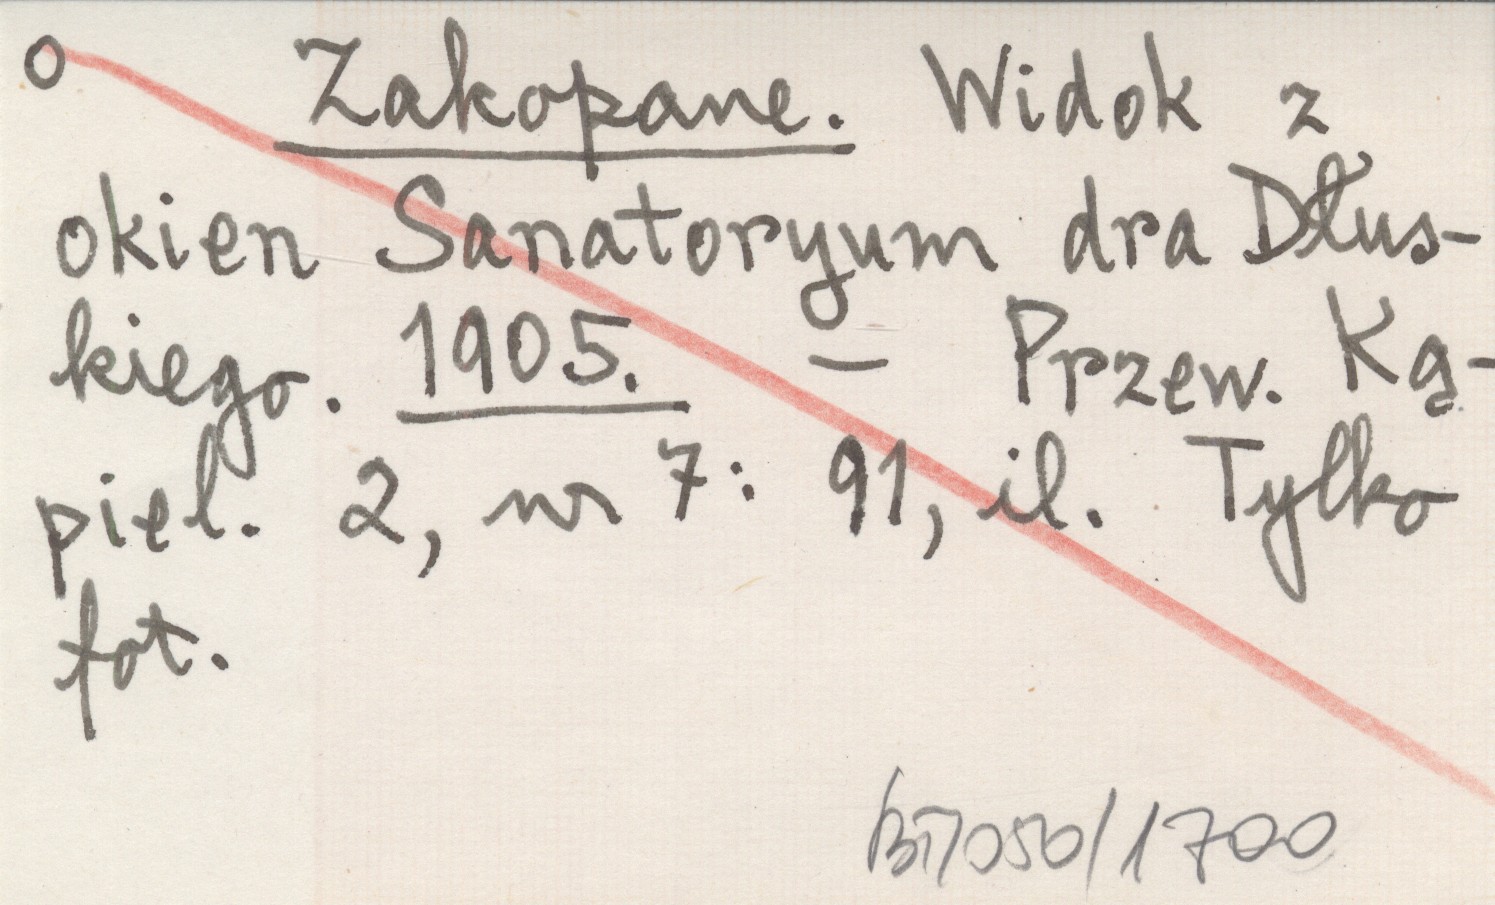 o Zakopane. Widok z
okien Sanatoryum dra Dłus-
kiego. 1905. — Przew. Ką-
piel. 2, nr 7: 91, il. Tylko
fot.
BT/050/1700